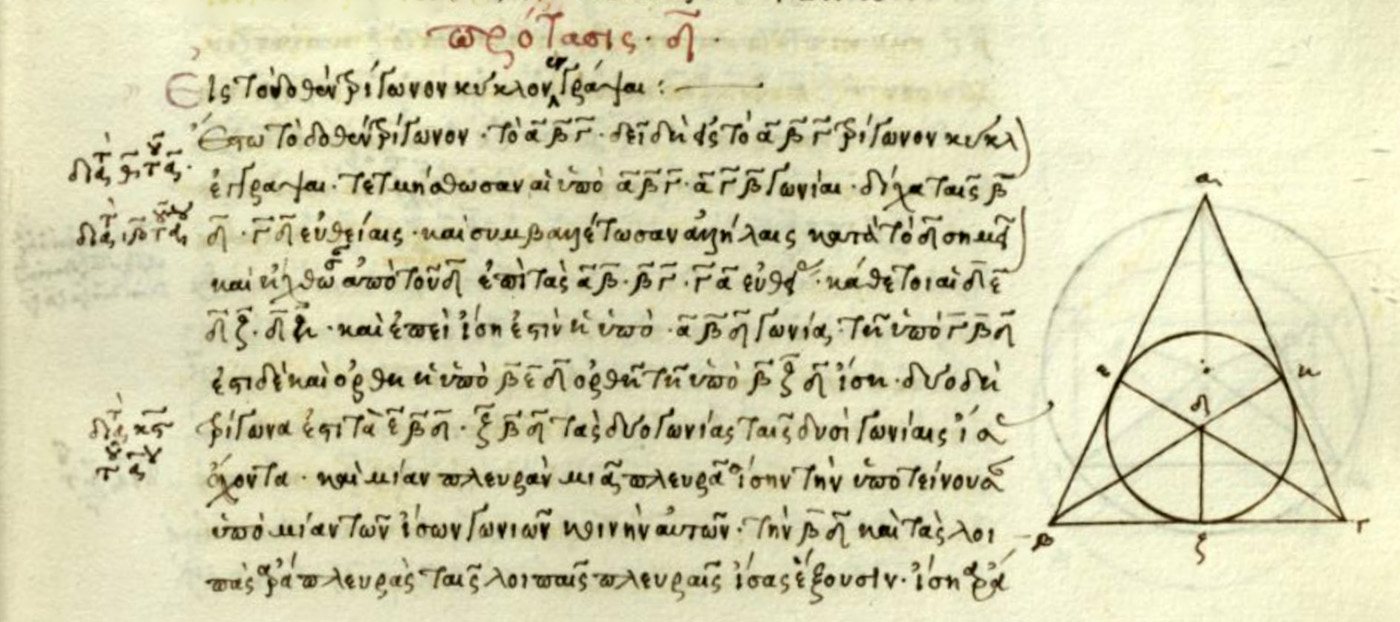 πρότασις δ̄
Εἰς τὸ δοθὲν τρίγωνον κύκλον ἐγγράψαι :
Ἔστω τὸ δοθὲν τρίγωνον · τὸ ᾱ β̄ γ̄ · δεῖ δὴ εἰς τὸ ᾱ β̄ γ̄ τρίγωνον κύκλ
ἐγγράψαι · τετμήσθωσαν αἱ ὑπὸ ᾱ β̄ γ̄ · ᾱ γ̄ β̄ γωνίαι · δίχα ταῖς β̄
δ̄ · γ̄ δ̄ εὐθείαις · καὶ συμβαλλέτωσαν ἀλλήλαις κατὰ τὸ δ̄ σημεῖ
καὶ ἤχθωσαν ἀπὸ τοῦ δ̄ ἐπὶ τὰς ᾱ β̄ · β̄ γ̄ · γ̄ ᾱ εὐθείας · κάθετοι αἱ δ̄ ε̄
δ̄ ζ̄ · δ̄ η̄ · καὶ ἐπεὶ ἴση ἐστὶν ἡ ὑπὸ · ᾱ β̄ δ̄ γωνία · τῇ ὑπὸ γ̄ β̄ δ̄
ἐστὶ δὲ καὶ ὀρθὴ ἡ ὑπὸ β̄ ε̄ δ̄ ὀρθῇ τῇ ὑπὸ β̄ ζ̄ δ̄ ἴση · δύο δὴ
τρίγωνα ἐστι τὰ ε̄ β̄ δ̄ · ζ̄ β̄ δ̄ τὰς δύο γωνίας ταῖς δυσὶ γωνίαις ἴσας
ἔχοντα · καὶ μίαν πλευρὰν μιᾷ πλευρᾷ ἴσην τὴν ὑποτείνουσαν
ὑπὸ μίαν τῶν ἴσων γωνιῶν κοινὴν αὐτῶν · τὴν β̄ δ̄ καὶ τὰς λοι
πὰς ἄρα πλευρὰς ταῖς λοιπαῖς πλευραῖς ἴσας ἕξουσιν · ἴση ἄρα
α
ε
η
δ
β
ζ
γ